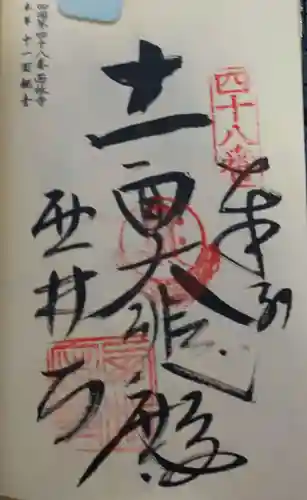 四十八番
奉納
十一面大悲殿
西林寺
四国第四十八番西林寺
本尊 十一面観音